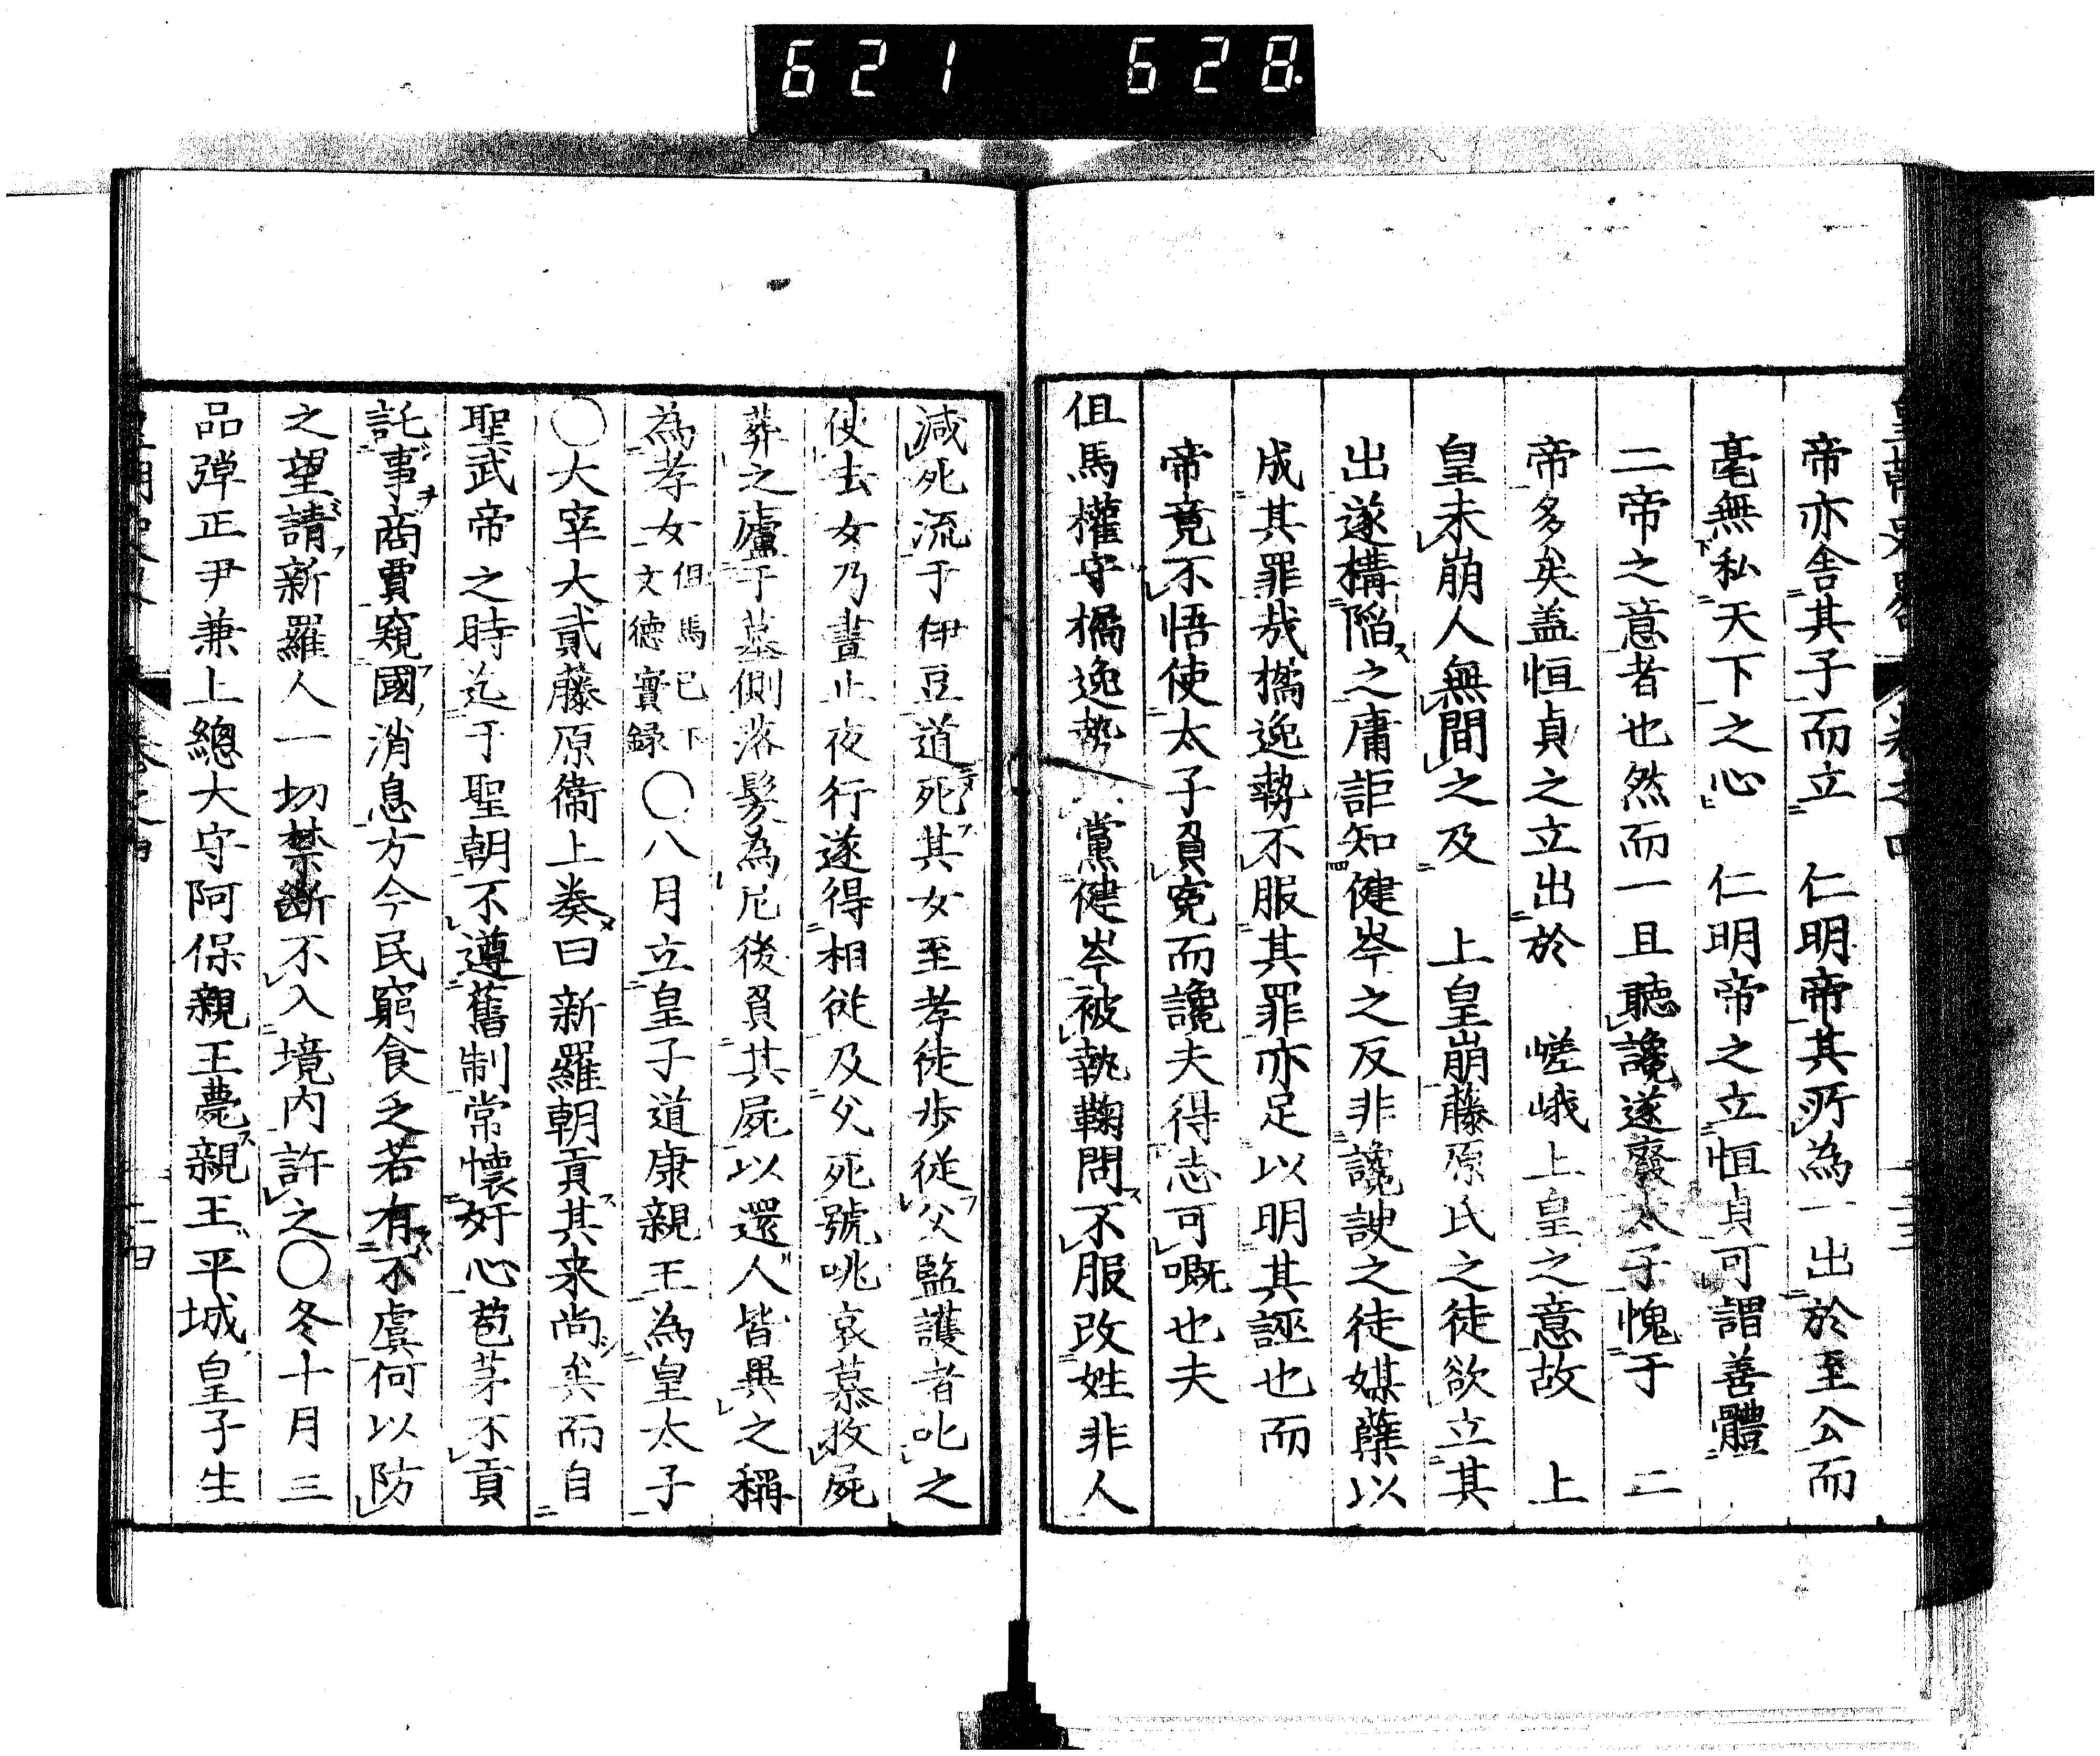 621 628.
帝亦舎其子而立 仁明帝其所為一出於至公而
毫無私天下之心 仁明帝之立恒貞可謂善體
二帝之意者也然而一旦聽讒遂廢太子愧于 二
帝多矣盖恒貞之立出於 嵯峨上皇之意故 上
皇未崩人無間之及 上皇崩藤原氏之徒欲立其
出遂構陥之庸詎知健岑之反非讒諛之徒媒蘖以
成其罪哉橘逸勢不服其罪亦足以明其誣也而
帝竟不悟使太子負寃而讒夫得志可嘅也夫
伹馬權守橘逸勢 黨健岑被執鞠問不服改姓非人
減死流于伊豆道死其女至孝徒歩從父監護者叱之
使去女乃晝止夜行遂得相從及父死號咷哀慕收屍
葬之廬于墓側落髮為尼後負其屍以還人皆異之稱
為孝女伹馬已下文德實録〇八月立皇子道康親王為皇太子
〇大宰大貳藤原衞上奏曰新羅朝貢其来尚矣而自
聖武帝之時迄于聖朝不遵舊制常懷奸心苞茅不貢
託事商賈窺國消息方今民窮食乏若有不虞何以防
之望請新羅人一切禁斷不入境内許之〇冬十月三
品彈正尹兼上總大守阿保親王薨親王平城皇子生